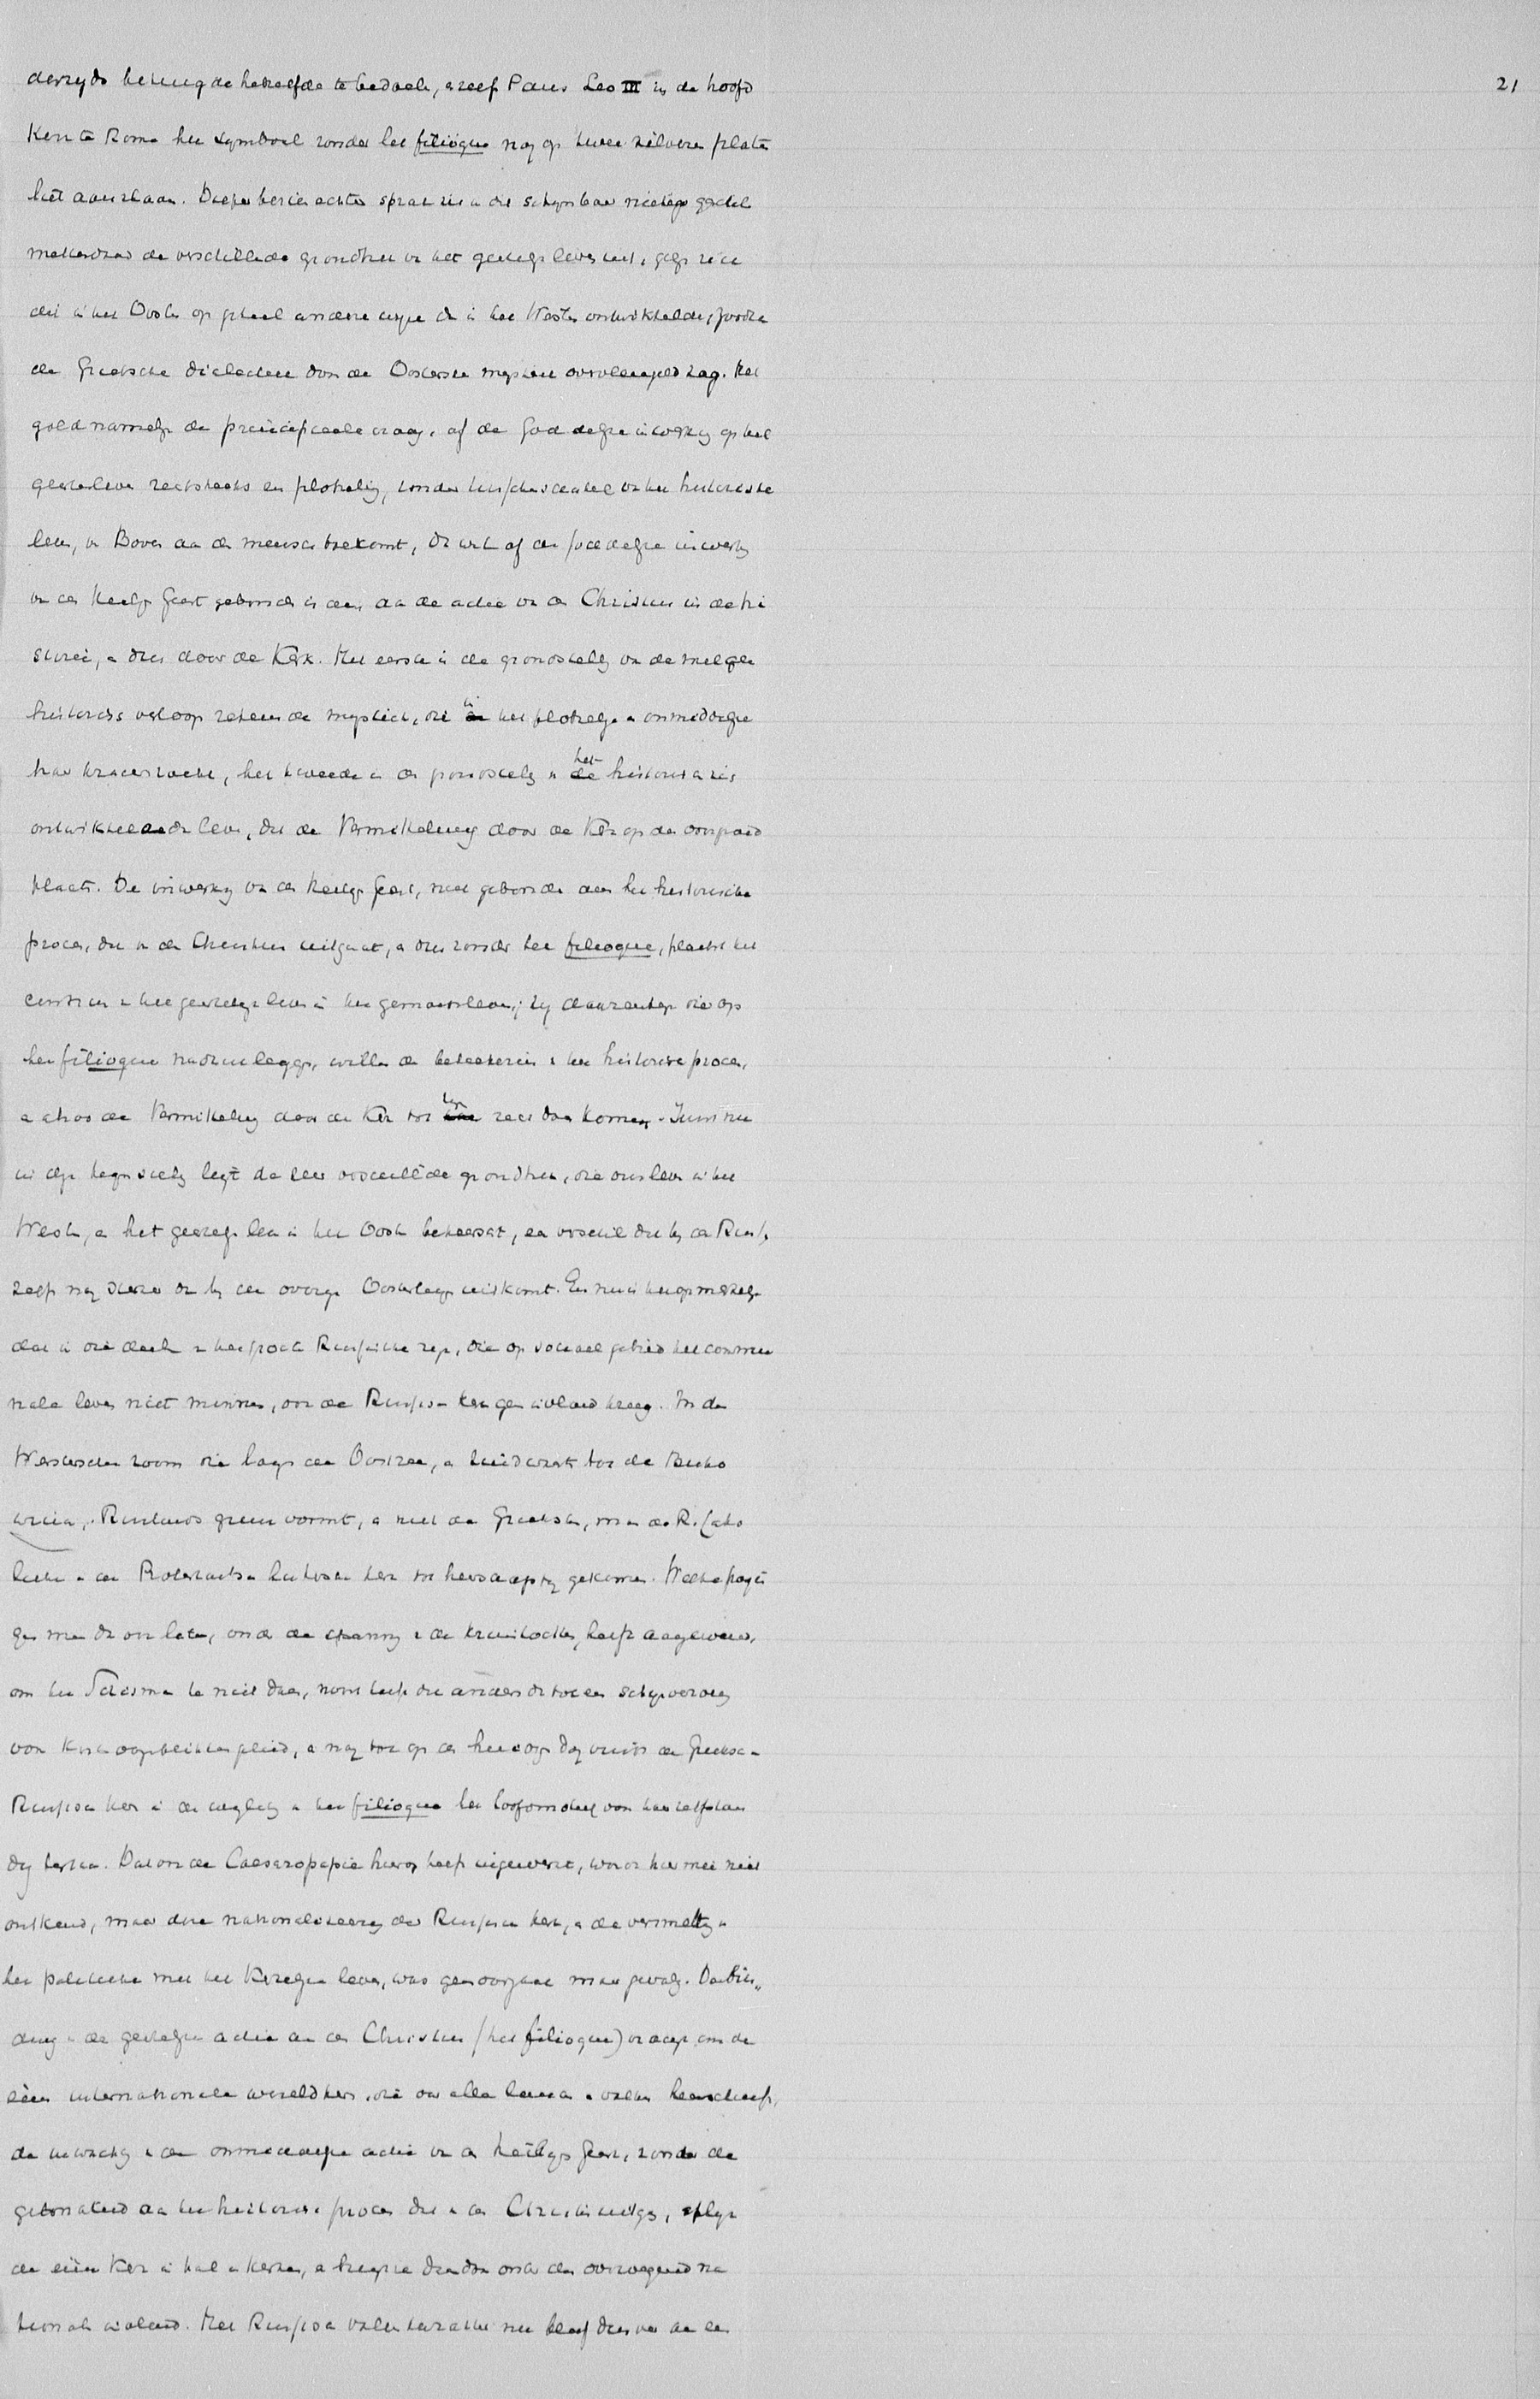 derzyds betuigde hetzelfde te bedoelen, en zelfs Paus Leo III in de hoofd
kerk te Rome het symbool zonder het filioque nog op twee zilveren platen
liet aanslaan. Dieper bezien echter sprak zich in dit schijnbaar nietige geschil
metterdaad de verschillende grondtrek van het geestelijk leven uit, gelijk zich
dit in het Oosten op geheel andere wijze dan in het Westen ontwikkelde, zoodra
de Grieksche dialectiek door de Oostersche mystiek overvleugeld zag. Het
gold namelijk de principieele vraag, of de Goddelijke inwerking op het
geestesleven rechtstreeks en plotseling, zonder tusschenschakel van het historische
leven, van Boven aan den mensch toekomt, dan wel of de Goddelijke inwerking
van den Heilige Geest gebonden is aan de actie van den Christus in de hi
storie, en dus door de Kerk. Het eerste is de grondstelling van de met geen
historisch verloop rekenende mystiek, die in het plotselinge en onmiddellijke
haar kracht zoekt, het tweede is de grondstelling van het historisch zich
ontwikkelende leven, dat de Vermitteling door de Kerk op den voorgrond
plaatst. De inwerking van den Heilige Geest, niet gebonden aan het historische
proces, dat van den Christus uitgaat, en dus zonder het filioque, plaatst het
centrum van het geestelijk leven in het gemoedsleven; zij daarentegen die op
het filioque nadruk leggen, willen de beteekenis van het historische proces,
en alzoo de Vermitteling door de Kerk tot zijn recht doen komen. Juist nu
in deze tegenstelling ligt de zeer verschillende grondtrek, die ons leven in het
Westen, en het geestelijk leven in het Oosten beheerscht, een verschil dat bij de Russen
zelfs nog sterker dan bij de overige Oosterlingen uitkomt. En nu is het opmerkelijk
dat in die deelen van het groote Russische rijk, die op sociaal gebied het commu
nale leven niet minnen, ook de Russische kerk geen invloed kreeg. In den
Westerschen zoom die langs de Oostzee, en zuidwaarts tot de Buko
wina, Ruslands grens vormt, is niet de Grieksche, maar de R. Catho
lieke en de Protestantsche Luthersche kerk tot heerschappij gekomen. Welke pogin
gen men dan ook later, onder de spanning van de kruistochten, heeft aangewend,
om het Schisma te niet doen, nooit heeft dit anders dan tot een schijnverzoening
voor korte oogenblikken geleid, en nog tot op den huidigen dag vindt de Grieksche
Russische kerk in de weglating van het filioque het hoofdmotief voor haar zelfstan
dig bestaan. Dat ook de Caesaropapie hierop heeft ingewerkt, wordt hiermee niet
ontkend, maar deze nationaliseering der Russische kerk, en de versmelting van
het politieke met het Kerkelijke leven, was geen oorzaak maar gevolg. De bin„
ding van de geestelijke actie aan den Christus (het filioque) vraagt om de
ééne internationale wereldkerk, die over alle landen en volken heerschappij,
de inwerking van de onmiddellijke actie van den Heilige Geest, zonder de
gebondenheid aan het historische proces dat van den Christus uitging, splijt
de ééne Kerk in tal van kerken, en brengt ze dan door onder den overwegend na
tionalen invloed. Het Russische volkskarakter nu bleef dus ver van een